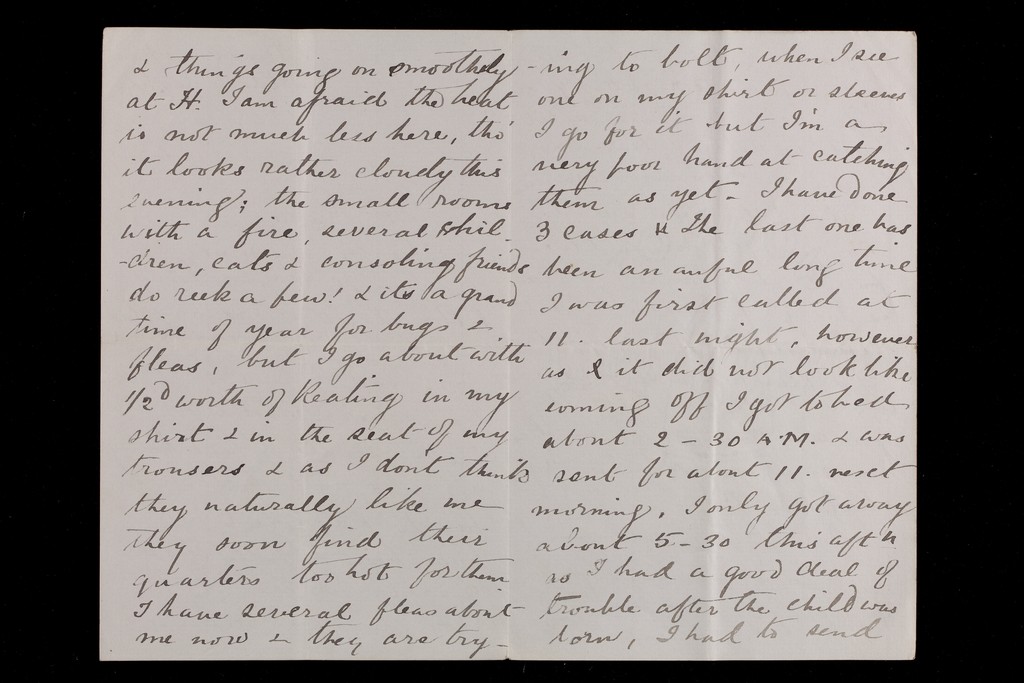 & things going on smoothely
at H. I am afraid the heat
is not much less here, tho'
it looks rather cloudy this
evening; the small rooms
with a fire, several chil-
-dren, cats & consoling friends
do reek a few! & its a grand
time of year for bugs &
fleas, but I go about with
1/2D worth of Keating in my
shirt & in the seat of my
trousers & as I don't think
they naturally like me
they soon find their
quarters too hot for them
I have several fleas about
me now & they are try-
-ing to bolt, when I see
one on my shirt or sleeves
I go for it but I'm a
very poor hand at catching
them as yet - I have done
3 cases & The last one has
been an awful long time
I was first called at
11. last night, however
as it did not look like
coming off I got to bed
about 2-30 A.M. & was
sent for about 11. next
morning, I only got away
about 5-30 this aft n
as I had a good deal of
trouble after the child was
born, I had to send